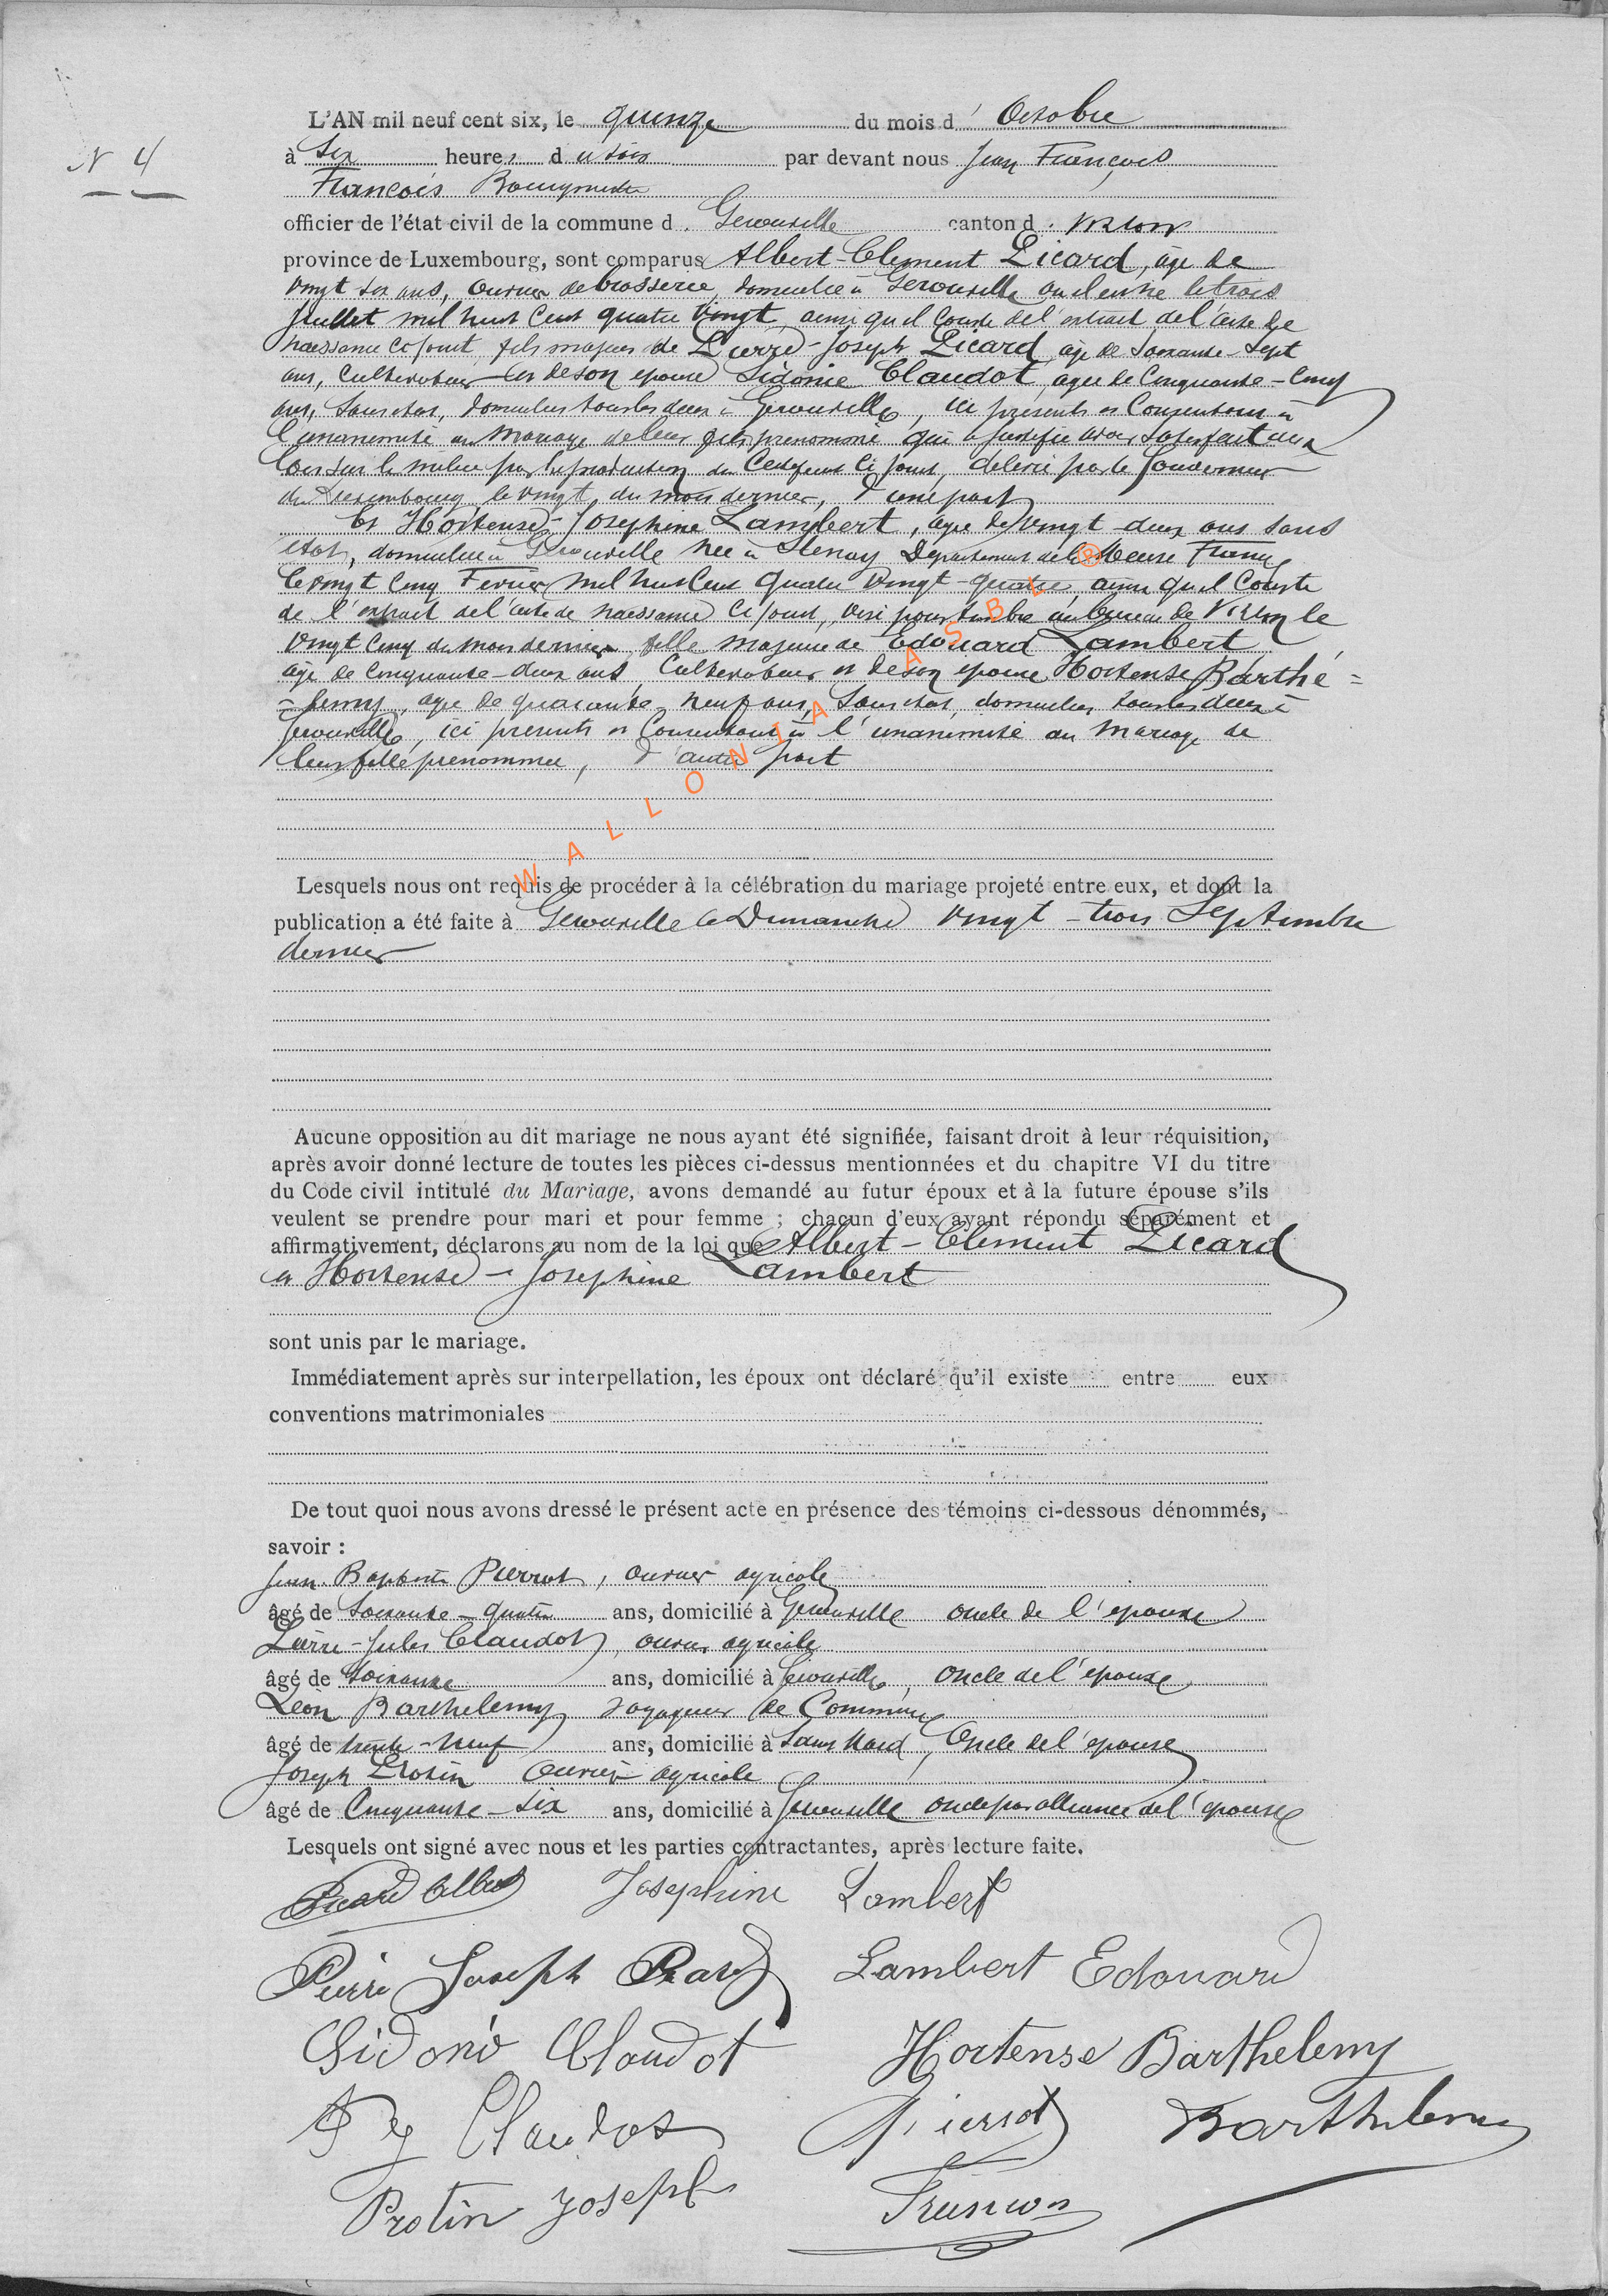 N 4
L'AN mil neuf cent six, le quinze du mois d' Octobre
à six heures du soir par devant nous Jean François
François Bourgmestre
officier de l'état civil de la commune d. Gerouville canton d. Virton
province de Luxembourg, sont comparus Albert-Clement Picard, âgé de
vingt six ans, ouvrier de brasserie, domicilié à Gerouville où il est né le trois
Juillet mil huit cent quatre vingt, ainsi qu'il conste de l'extrait de l'acte de
naissance ci joint, fils majeur de Pierre-Joseph Picard âgé de soixante-sept
ans, cultivateur et de son epouse Sidonie Claudot, agée de cinquante-cinq
ans, sans etat, domiciliés tous les deux à Gerouville, ici présents et consentant à
l'unanimité au mariage de leur fils prénommé qui a justifié avoir satisfait aux
lois sur la milice par la production du certificat ci joint, délivré par le Gouverneur
du Luxembourg le vingt du mois dernier, d'une part
Et Hortense-Josephine Lambert, agée de vingt-deux ans sans
etat, domiciliée à Gerouville née à Stenay Département de la Meuse France
le vingt cinq Fevrier mil huit cent quatre vingt-quatre, ainsi qu'il conste
de l'extrait de l'acte de naissance ci joint, visé pour timbre au bureau de Virton le
vingt cinq du mois dernier, fille majeure de Edouard Lambert
âgé de cinquante-deux ans, cultivateur et de son epouse Hortense Barthé=
=lemy, agée de quarante neuf ans, sans etat, domiciliés tous les deux à
Gerouville, ici présents et consentant à l'unanimité au mariage de
leur fille prénommée, d'autre part
WALLONIA ASBL ®
Lesquels nous ont requis de procéder à la célébration du mariage projeté entre eux, et dont la
publication a été faite à Gerouville le Dimanche vingt-trois Septembre
dernier
Aucune opposition au dit mariage ne nous ayant été signifiée, faisant droit à leur réquisition,
après avoir donné lecture de toutes les pièces ci-dessus mentionnées et du chapitre VI du titre
du Code civil intitulé du Mariage, avons demandé au futur époux et à la future épouse s'ils
veulent se prendre pour mari et pour femme ; chacun d'eux ayant répondu séparément et
affirmativement, déclarons au nom de la loi que Albert-Clément Picard
et Hortense-Josephine Lambert
sont unis par le mariage.
Immédiatement après sur interpellation, les époux ont déclaré qu'il existe entre eux
conventions matrimoniales
De tout quoi nous avons dressé le présent acte en présence des témoins ci-dessous dénommés,
savoir :
Jean-Baptiste Pierrot, ouvrier agricole
âgé de soixante-quatre ans, domicilié à Gerouville oncle de l'epouse
Pierre-Jules Claudot, ouvrier agricole
âgé de soixante ans, domicilié à Gerouville, oncle de l'epouse
Léon Barthelemy voyageur de Commerce
âgé de trente-neuf ans, domicilié à Saint Mard, Oncle de l'epouse
Joseph Protin ouvrier agricole
âgé de cinquante-six ans, domicilié à Gerouville oncle par alliance de l'epouse
Lesquels ont signé avec nous et les parties contractantes, après lecture faite.
Picard Albert Josephine Lambert
Pierre Joseph Picard Lambert Edouard
Sidonie Claudot Hortense Barthelemy
Claudot Pierrot Barthelemy
Protin Joseph François